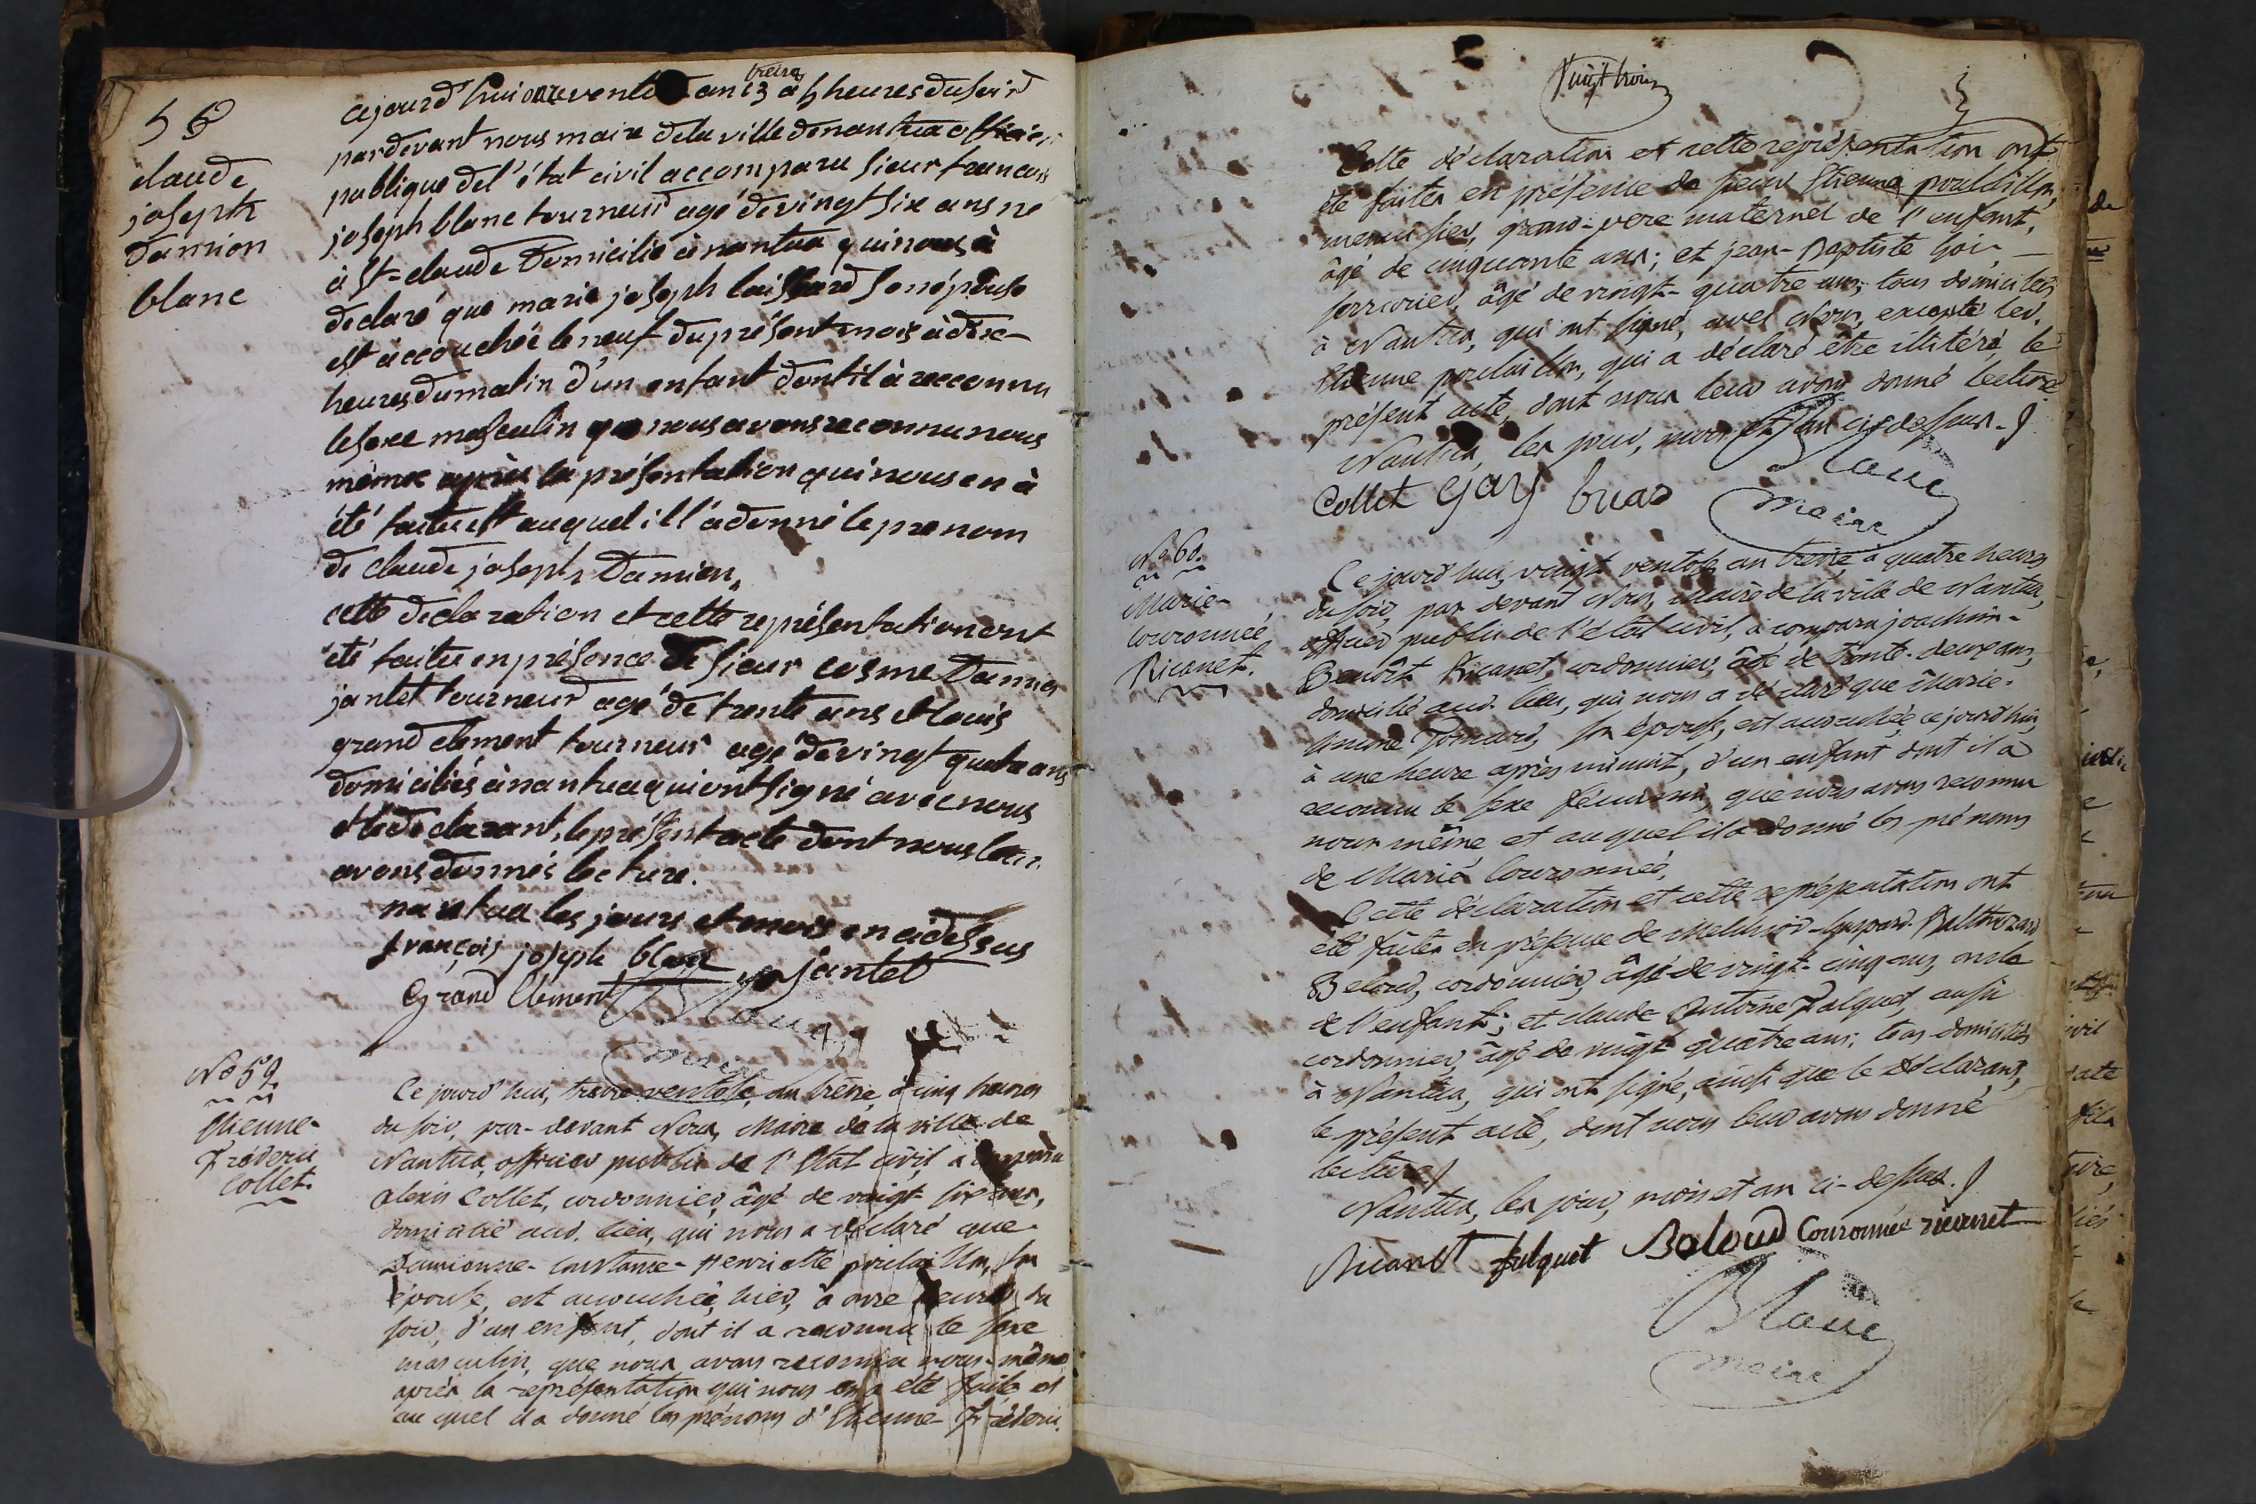 58
claude
joseph
Damien
blanc
cejourd'hui onze ventose an 13 treize à 5 heures du soir
pardevant nous maire dela ville denantua officier
publique del'état civil accomparu sieur francois
joseph blanc tourneurd agé devingt six ans né
à St-claude Domicilié à nantua qui nous à
declaré que marie joseph son épouse
est accouchée le neuf du présent mois à dix
heures dumatin d'un enfant dont il à recconnu
le sexe masculin que nous avons reconnu nous
même après la présentation qui nous en à
été faite et auquel ill'à donné le prenom
de claude joseph Damien,
cette declaration et cette représentation ont
été faites en présence de sieur cosme Damien
jantet tourneurd agé de trente ans et louis
grand clement tourneur agé de vingt quatre ans
domiciliés à nantua qui ont signé avec nous
et le declarant, le présent acte dont nous leur
avons donnés lecture.
nantua les jours et mois en cidessus
françois joseph blanc
jantet
Grand Clément
Blanc
maire
No 59.
Etienne-
Fréderic
Collet.
Ce jourd'hui, treize ventose, an treize, à cinq heures
du soir, par-devant Nous, Maire de la ville de
Nantua, officier public de l'Etat civil a comparu
alexis Collet, cordonnier, âgé de vingt six ans,
domicilié aud. lieu, qui nous a déclaré que
Damienne-Constance-Henriette poulaillon, sa
épouse, est accouchée, hier, à onze heures du
soir, d'un enfant, dont il a reconnu le sexe
masculin, que nous avons reconnu nous-même
après la représentation qui nous en a été faite et
au quel il a donné les prénoms d'Etienne Fréderic.
Vingt trois
Cette déclaration et cette représentation ont
été faites en présence de sieur Etienne poulaillon,
menuisier, grand-pere maternel de l'enfant,
âgé de cinquante ans; et jean-Baptiste Goi,
serrurier, âgé de vingt-quatre ans, tous domiciliés
à Nantua, qui ont signé, avec Nous, excepté led.
Etienne poulaillon, qui a déclaré être illitéré, le
présent acte, dont nous leur avons donné lecture
Nantua, les jour, mois et an ci-dessus.
Collet Gay
Blanc
maire
No 60.
Marie-
Couronnée
Ricanet.
Ce jourd'hui, vingt ventose an treize à quatre heures
du soir, par devant Nous, Maire de la ville de Nantua,
officier public de l'état civil, a comparu joachim-
Benoît Ricanet, cordonnier, âgé de Trente-deux ans,
domicilié aud. lieu, qui nous a déclaré que Marie-
son épouse, est accouchée, ce jourd'hui,
à une heure après minuit, d'un enfant dont il a
reconnu le sexe féminin, que nous avons reconnu
nous même et au quel il a donné les prénoms
de Marie Couronnée.
Cette déclaration et cette représentation ont
été faites en présence de Melchior-Gaspard-Balthazard
Beloud, cordonnier, âgé de vingt-cinq ans, oncle
de l'enfant; et claude Antoine Falquet, aussi
cordonnier, âgé de vingt quatre ans; tous domiciliés
à Nantua, qui ont signé, ainsi que le Déclarant,
le présent acte, dont nous leur avons donné
lecture
Nantua, les jour, mois et an ci-dessus.
Ricanet falquet Beloud Couronnée ricanet
Blanc
maire